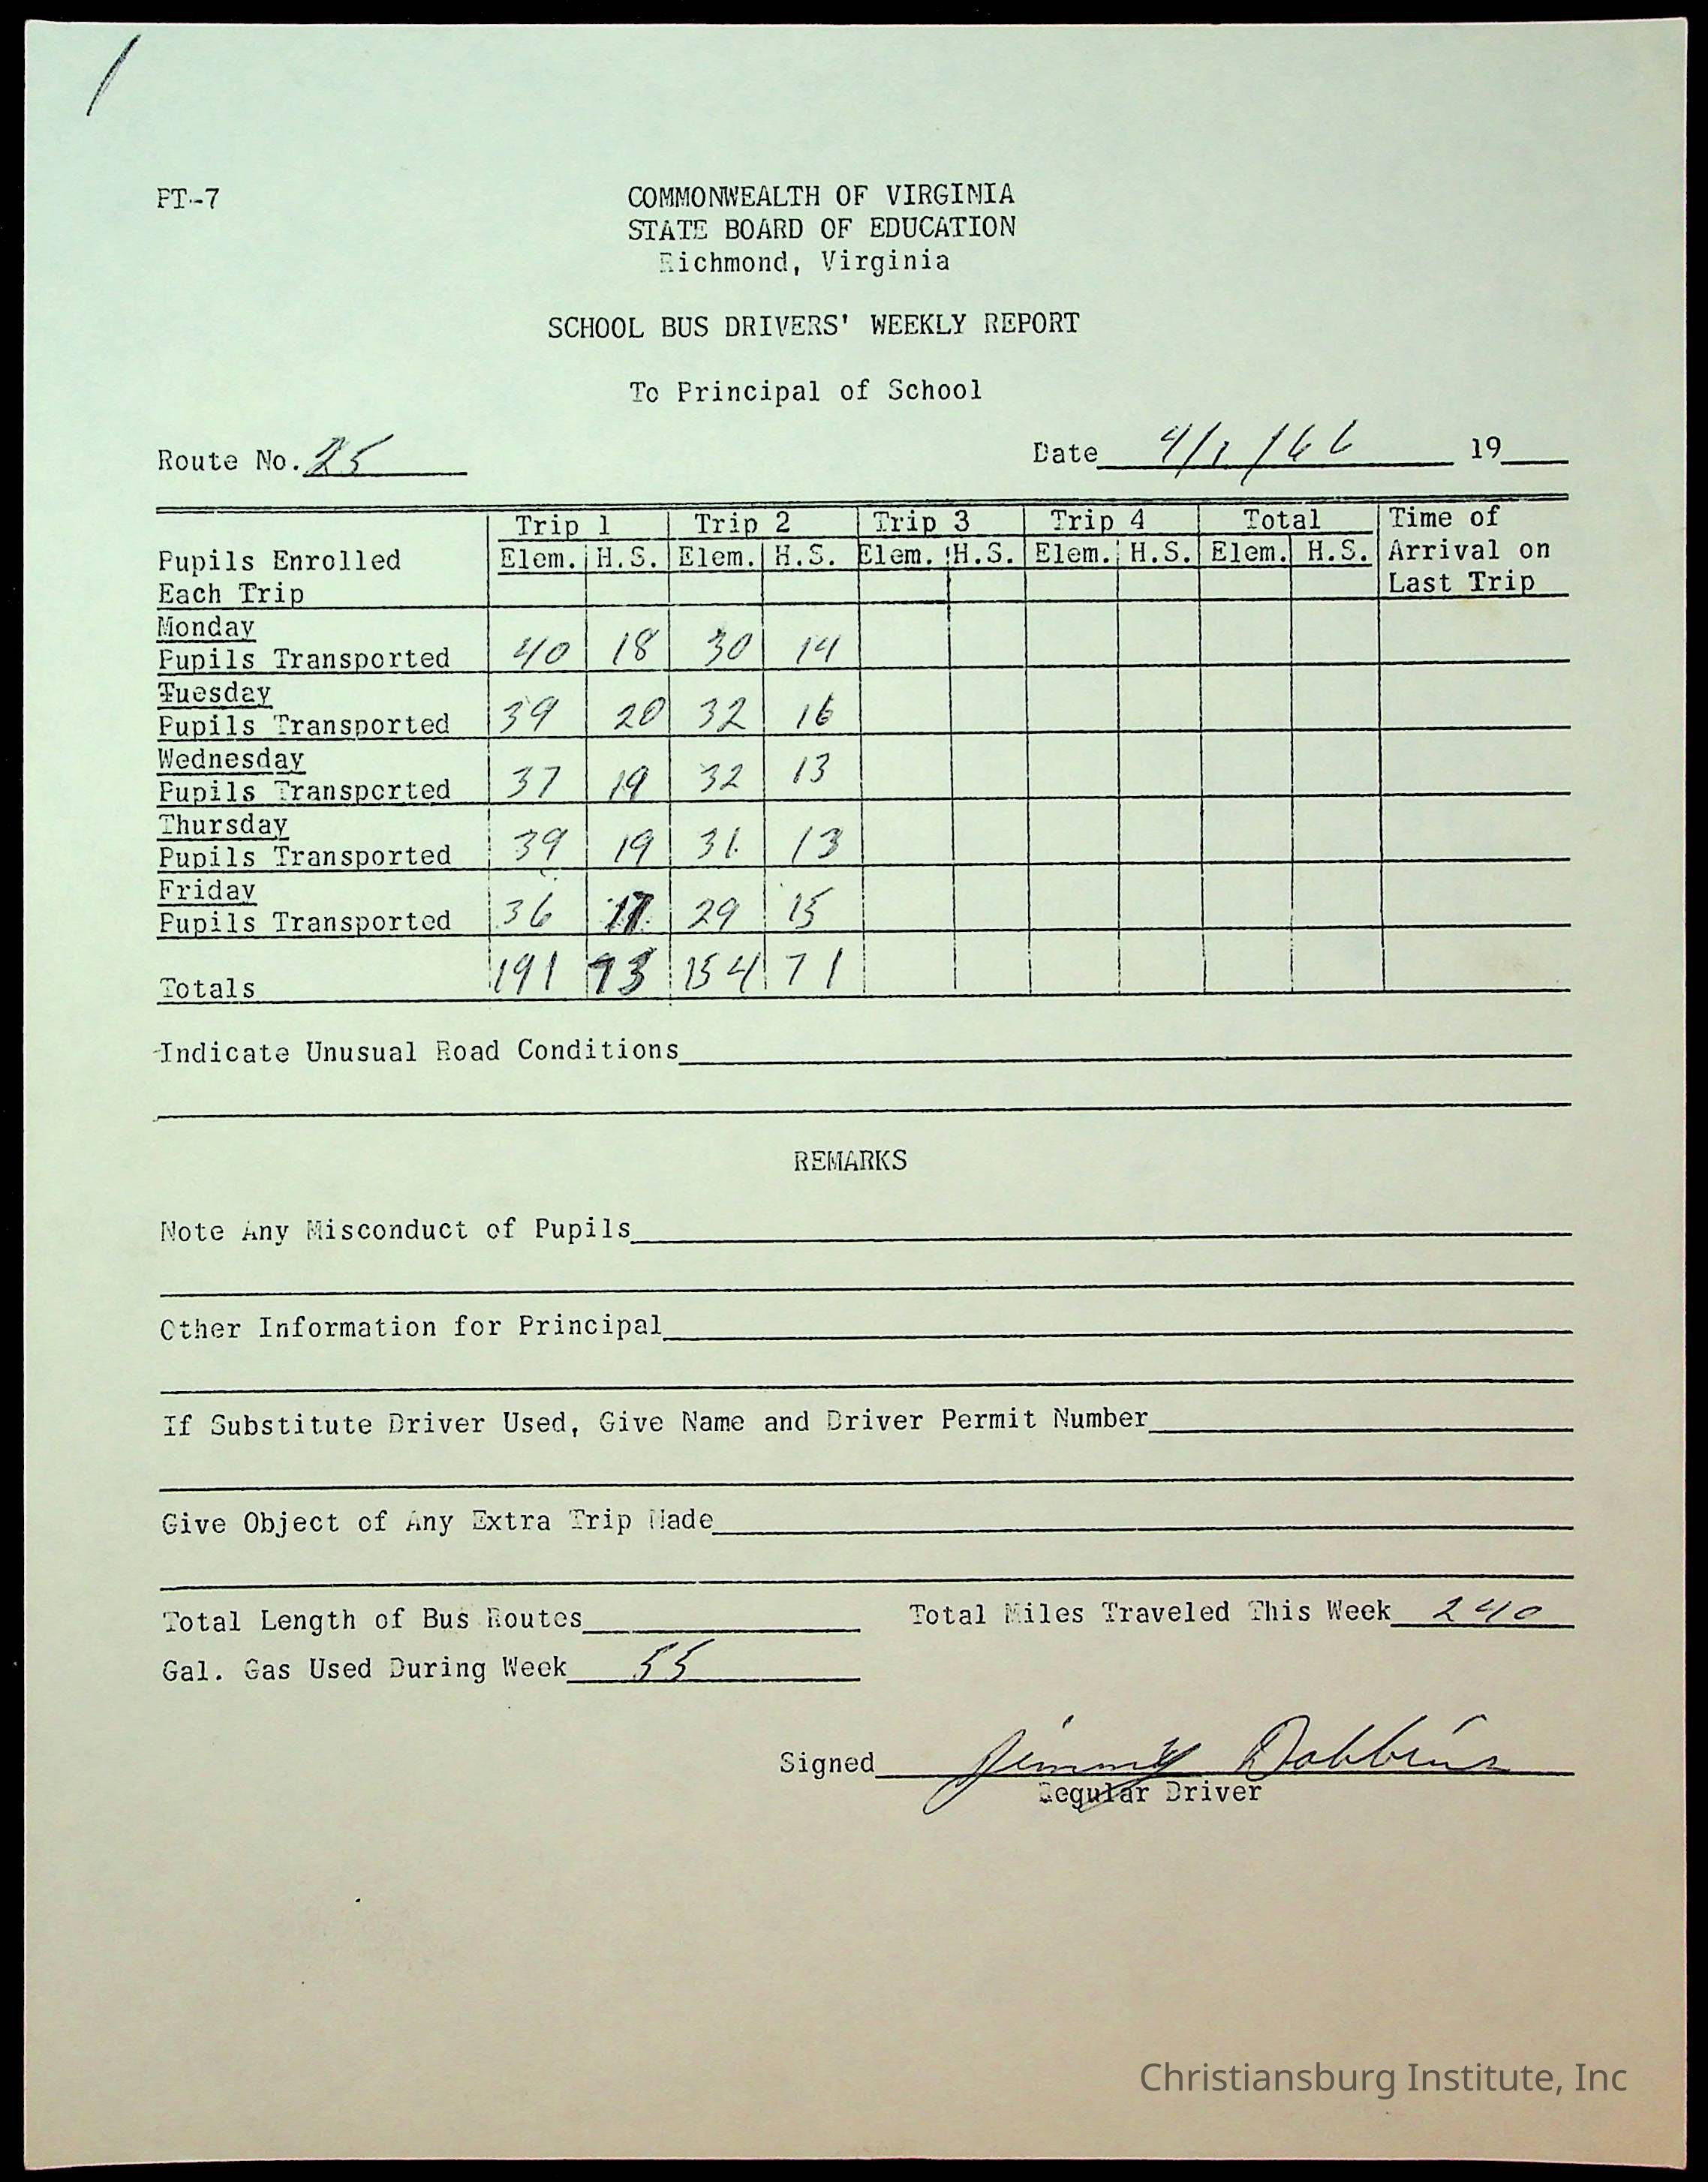 PT-7
COMMONWEALTH OF VIRGINIA
STATE BOARD OF EDUCATION
Richmond, Virginia
SCHOOL BUS DRIVERS' WEEKLY REPORT
To Principal of School
Route No. 25 Date 4/1/66 19
Trip 1 Trip 2 Trip 3 Trip 4 Total Time of
Pupils Enrolled Elem. H.S. Elem. H.S. Elem. H.S. Elem. H.S. Elem. H.S. Arrival on
Each Trip Last Trip
Monday
Pupils Transported 40 18 30 14
Tuesday
Pupils Transported 39 20 32 16
Wednesday
Pupils Transported 37 19 32 13
Thursday
Pupils Transported 39 19 31 13
Friday
Pupils Transported 36 17 29 15
Totals 191 93 154 71
Indicate Unusual Road Conditions
REMARKS
Note Any Misconduct of Pupils
Other Information for Principal
If Substitute Driver Used, Give Name and Driver Permit Number
Give Object of Any Extra Trip Made
Total Length of Bus Routes Total Miles Traveled This Week 240
Gal. Gas Used During Week 55
Signed Jimmy Dobbins
Regular Driver
Christiansburg Institute, Inc